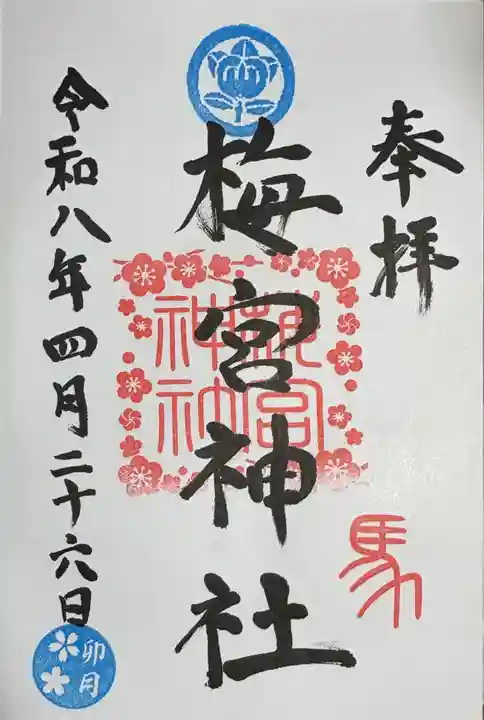 奉拝
馬
梅宮神社
梅宮神社
令和八年四月二十六日
卯月